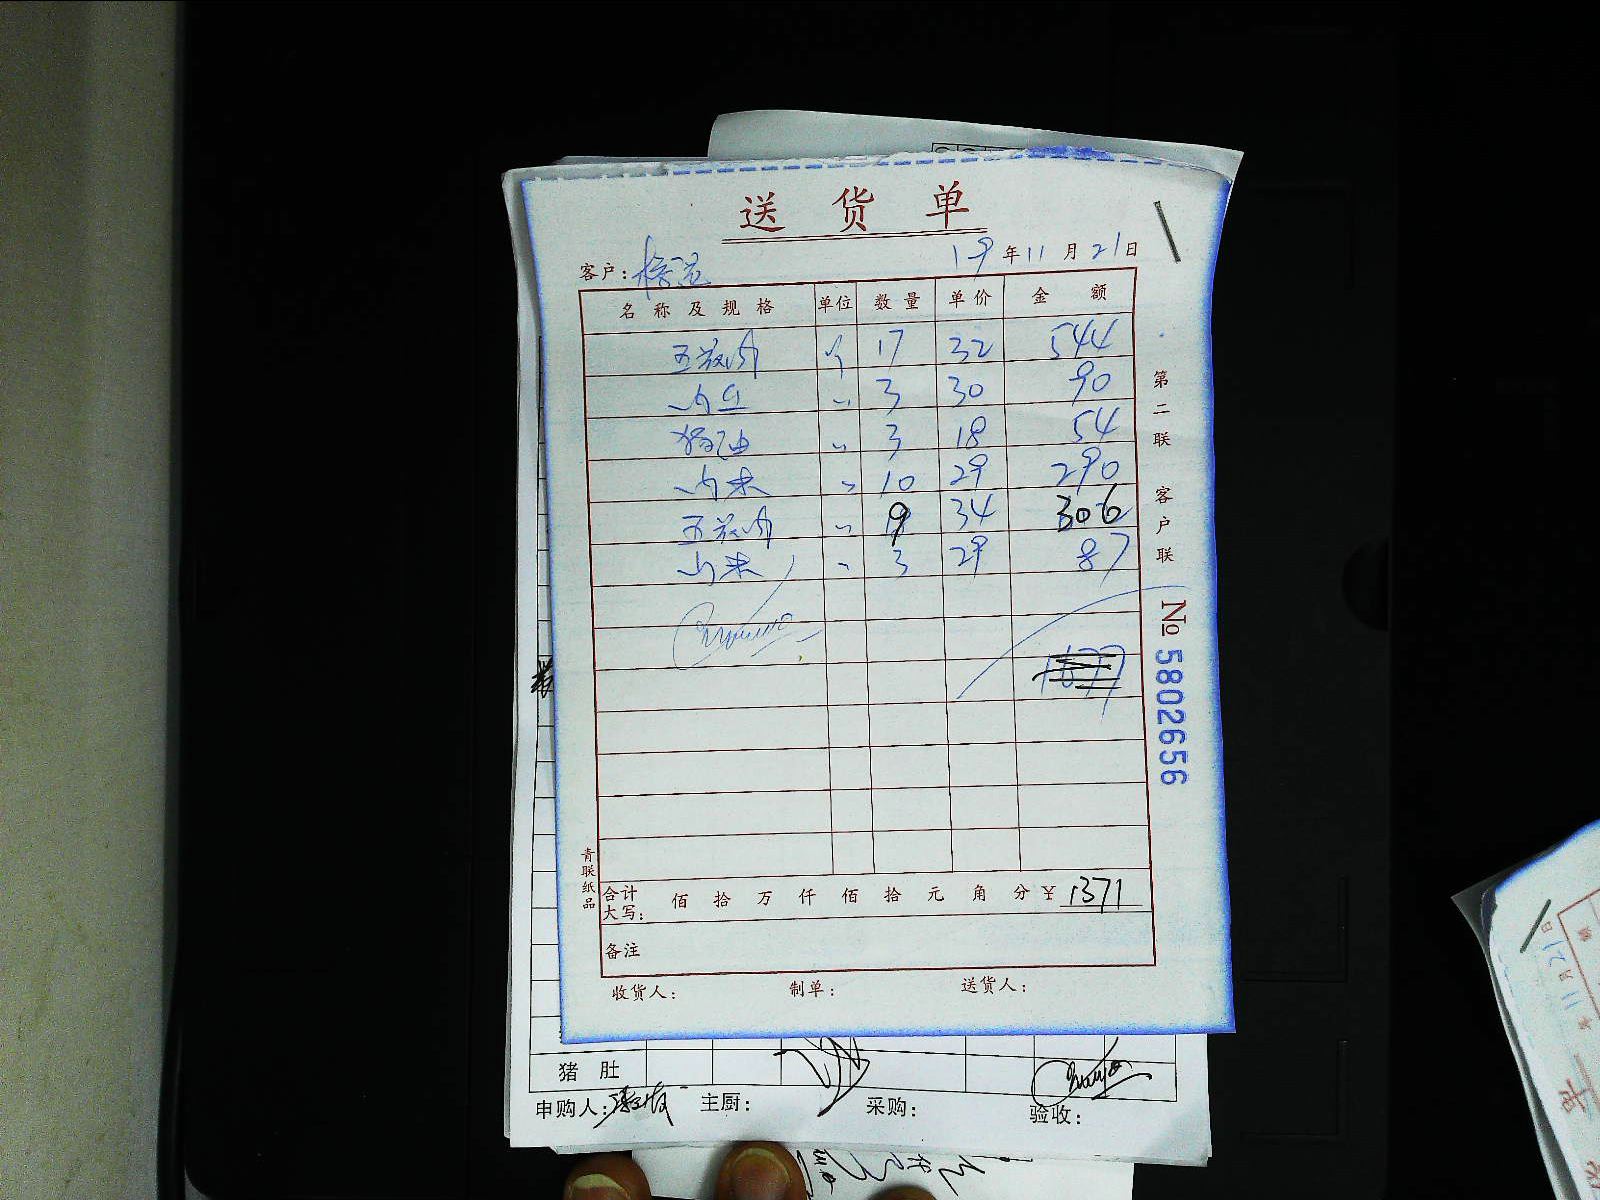 送货单
客户: 19年11月21日
名称及规格 单位 数量 单价 金额
五花肉 斤 17 32 544
肉丝 〃 3 30 90
猪油 〃 3 18 54
肉末 〃 10 29 290
五花肉 〃 9 34 306
肉末 〃 3 29 87
1677
合计大写: 佰 拾 万 仟 佰 拾 元 角 分 ¥ 1371
备注
收货人: 制单: 送货人:
第二联 客户联
№ 5802656
青联纸品
猪肚
申购人: 主厨: 采购: 验收:
11月21日